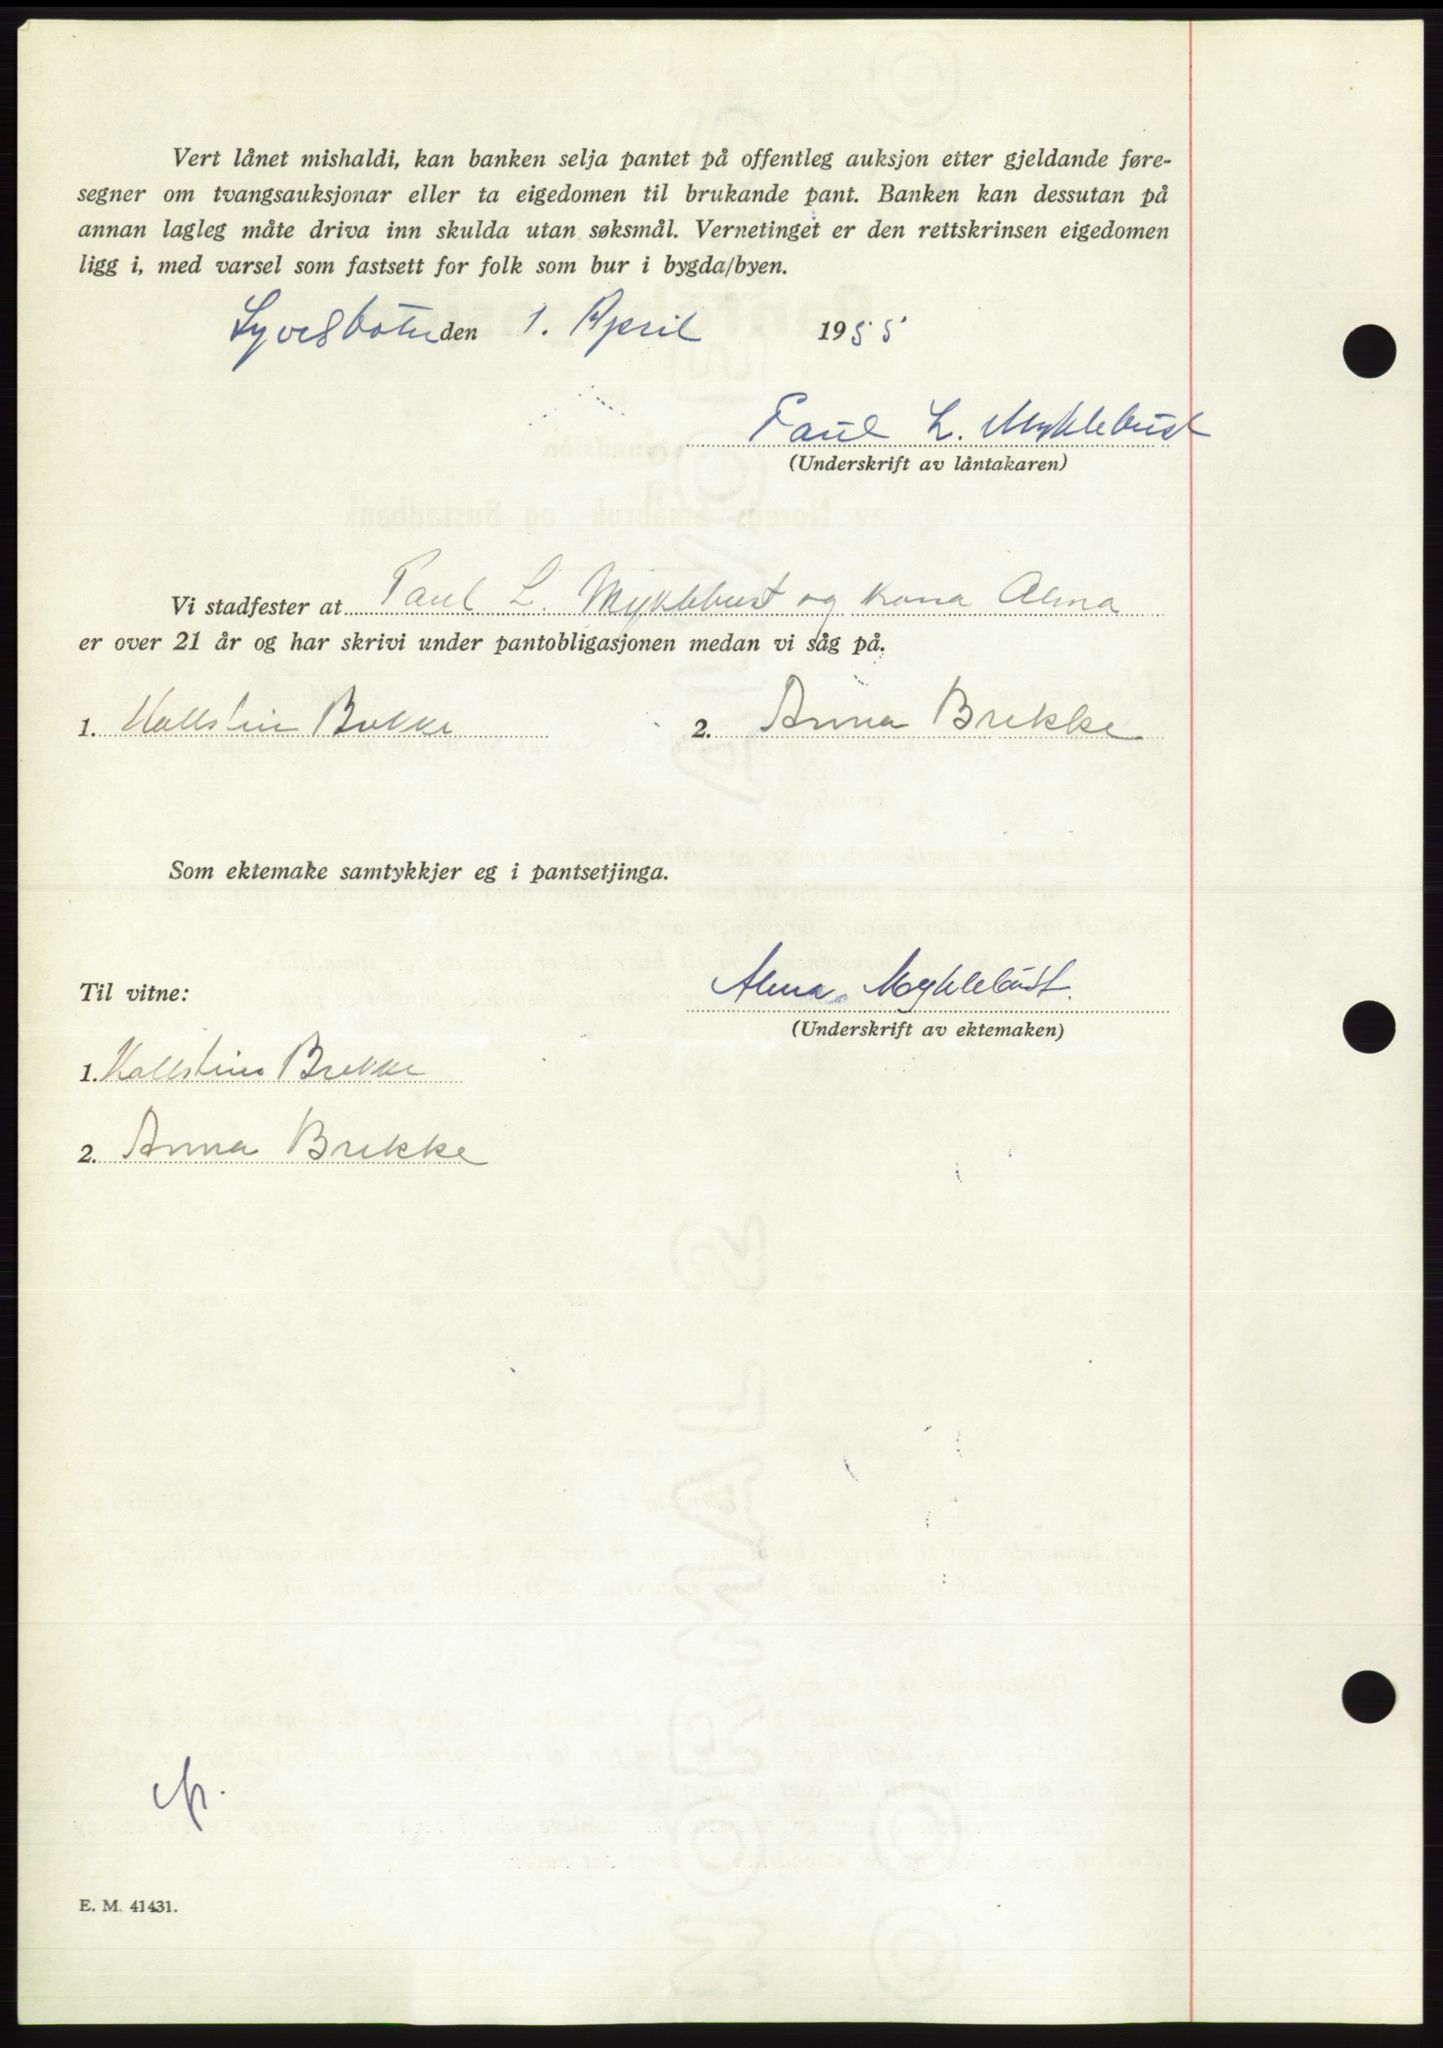 Vert lånet mishaldi, kan banken selja pantet på offentleg auksjon etter gjeldande føre-
segner om tvangsauksjonar eller ta eigedomen til brukande pant. Banken kan dessutan på
annan lagleg måte driva inn skulda utan søksmål. Vernetinget er den rettskrinsen eigedomen
ligg i, med varsel som fastsett for folk som bur i bygda/byen.
den 1. April 1955
Paul L. Myklebust
(Underskrift av låntakaren)
Vi stadfester at Paul L. Myklebust og kona Alma
er over 21 år og har skrivi under pantobligasjonen medan vi såg på.
1. Hallstein Brekke 2. Anna Brekke
Som ektemake samtykkjer eg i pantsetjinga.
Til vitne:
Alma Myklebust.
(Underskrift av ektemaken)
1. Hallstein Brekke
2. Anna Brekke
E. M. 41431.